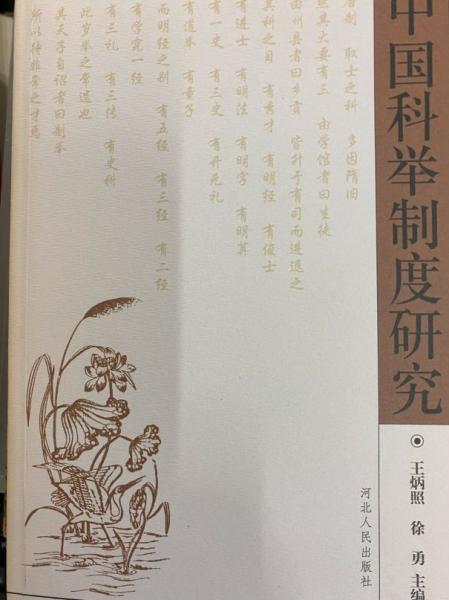 中国科举制度研究
王炳照 徐 勇 主编
河北人民出版社
唐制 取士之科 多因隋旧
然其大要有三 由学馆者曰生徒
由州县者曰乡贡 皆升于有司而进退之
其科之目 有秀才 有明经 有俊士
有进士 有明法 有明字 有明算
有一史 有三史 有开元礼
有道举 有童子
而明经之别 有五经 有三经 有二经
有学究一经
有三礼 有三传 有史科
此岁举之常选也
其天子自诏者曰制举
所以待非常之才焉